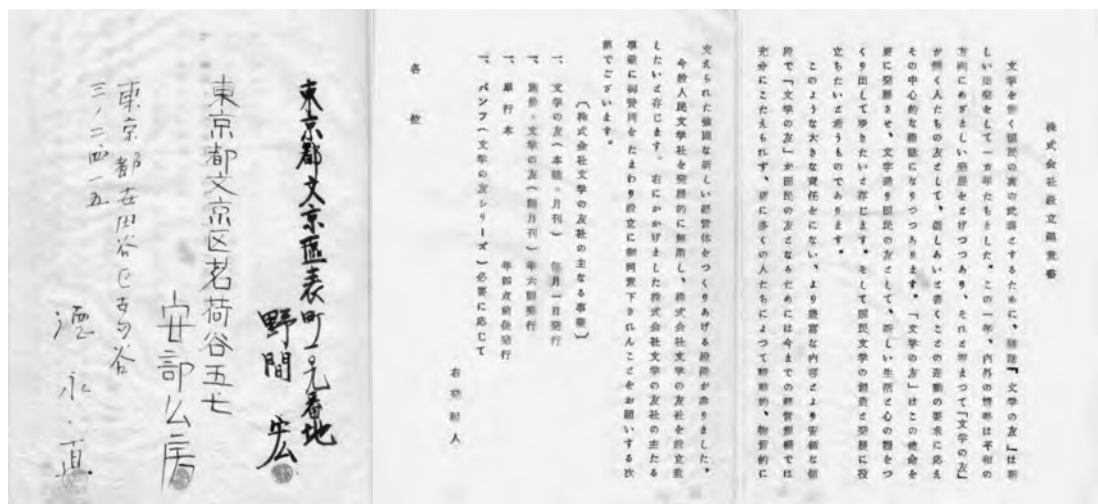 株式会社設立趣意書
文学を働く国民の真の武器とするために、雑誌『文学の友』は新
しい出発をして一カ年たちました。この一年、内外の情勢は平和の
方向にめざましい発展をとげつつあり、それと相まつて『文学の友』
が働く人たちの友として、話しあいと書くことの運動の要求に応え
その中心的な雑誌になりつつあります。『文学の友』はこの使命を
更に発展させ、文字通り国民の友として、新しい生活と心の糧をつ
くり出してゆきたいと存じます。そして国民文学の創造と発展に役
立ちたいと希うものであります。
このような大きな責任をにない、より豊富な内容とより安価な値
段で『文学の友』が国民の友となるためには今までの経営規模では
充分にこたえられず、更に多くの人たちによつて精神的、物質的に
支えられた強固な新しい経営体をつくりあげる段階が参りました。
今般人民文学社を発展的に解消し、株式会社文学の友社を設立致
したいと存じます。右にかかげました株式会社文学の友社の主たる
事業に御賛同をたまわり設立に御同意下されんことをお願いする次
第でございます。
〔株式会社文学の友社の主なる事業〕
一、文学の友(本誌・月刊) 毎月一日発行
一、文学の友(隔月刊) 年六回発行
一、単行本 年四点前後発行
一、パンフ(文学の友シリーズ)必要に応じて
右発起人
各位
東京都文京區表町一〇九番地
野間宏
東京都文京区茗荷谷五七
安部公房
東京都世田谷区世田谷
三ノ二四一五
德永直